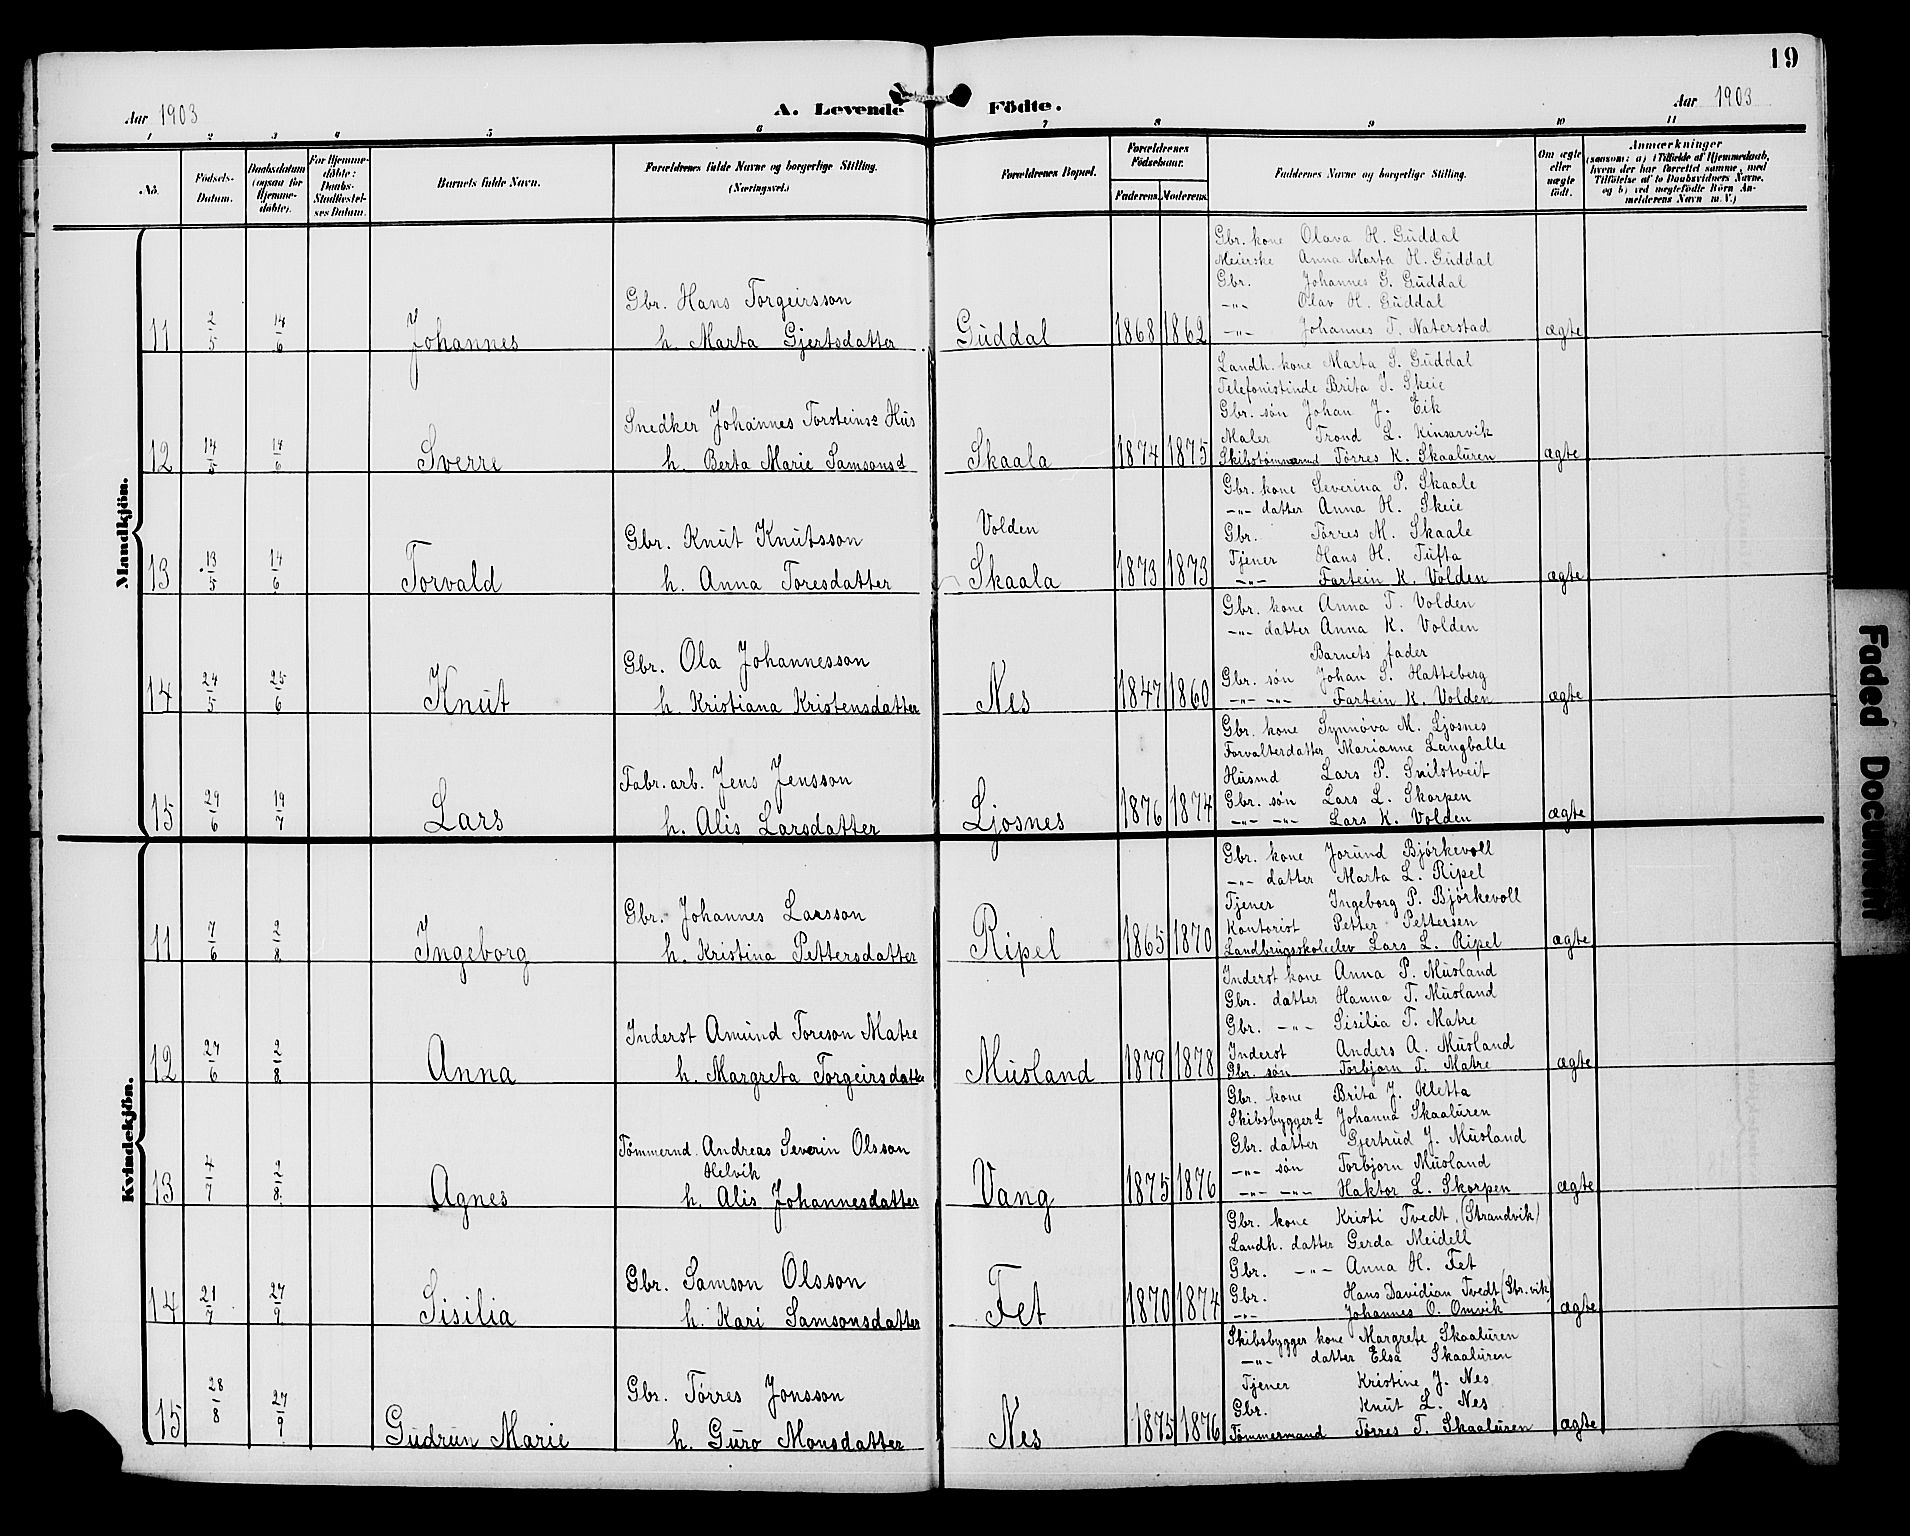 19
Aar 1903
A. Levende Födte.
Aar 1903
1 2 3 4 5 6 7 8 9 10 11
No.
Födsels-Datum.
Daabsdatum (ogsaa for Hjemme-döbte).
For Hjemme-döbte: Daabs-Stadfæstel-ses Datum.
Barnets fulde Navn.
Forældrenes fulde Navne og borgerlige Stilling.
(Næringsvei.)
Forældrenes Bopæl.
Forældrenes Födselsaar.
Faderens. Moderens.
Faddernes Navne og borgerlige Stilling.
Om ægte eller uægte födt.
Anmærkninger
(saasom: a) i Tilfælde af Hjemmedaab, hvem der har forrettet samme, med Tilföielse af to Daabsvidners Navne. og b) ved uegtefödte Börn An-melderens Navn m. V.)
Mandkjön.
11 2/5 14/6 Johannes
Gbr. Hans Torgeirsson
h. Marta Gjertsdatter
Guddal 1868 1862
Gbr. kone Olava H. Guddal
Meierske Anna Marta H. Guddal
Gbr. Johannes G. Guddal
-"- Olav H. Guddal
-"- Johannes T. Naterstad
ægte
12 14/5 14/6 Sverre
Snedker Johannes Torsteinss Hus
h. Berta Marie Samsonsd
Skaala 1874 1875
Landh. kone Marta S. Guddal
Telefonistinde Brita J. Skeie
Gbr. søn Johan J. Eik
Maler Trond L. Kinsarvik
Skibstømmermd Tørres K. Skaaluren
ægte
13 13/5 14/6 Torvald
Gbr. Knut Knutsson
h. Anna Toresdatter
Volden
Skaala 1873 1873
Gbr. kone Severina P. Skaale
-"- datter Anna H. Skeie
Gbr. Tørres M. Skaale
Tjener Hans H. Tufta
-"- Fartein K. Volden
ægte
14 24/5 25/6 Knut
Gbr. Ola Johannesson
h. Kristiana Kristensdatter
Nes 1847 1860
Gbr. kone Anna T. Volden
-"- datter Anna K. Volden
Barnets fader
Gbr. søn Johan S. Hatteberg
-"- -"- Fartein K. Volden
ægte
15 29/6 19/7 Lars
Fabr. arb. Jens Jensson
h. Alis Larsdatter
Ljosnes 1876 1874
Gbr. kone Synnøva M. Ljosnes
Forvalterdatter Marianne Langballe
Husmd Lars P. Snilstveit
Gbr. søn Lars L. Skorpen
-"- -"- Lars K. Volden
ægte
Kvindekjön.
11 7/6 2/8 Ingeborg
Gbr. Johannes Larsson
h. Kristina Pettersdatter
Ripel 1865 1870
Gbr. kone Jorund Bjørkevoll
-"- datter Marta L. Ripel
Tjener Ingeborg P. Bjørkevoll
Kontorist Petter Pettersen
Landbrugsskoleelev Lars L. Ripel
ægte
12 27/6 2/8 Anna
Inderst Amund Toreson Matre
h. Margreta Torgeirsdatte
Musland 1879 1878
Inderst kone Anna P. Musland
Gbr. datter Hanna T. Musland
Gbr. -"- Sisilia T. Matre
Inderst Anders A. Musland
Gbr. søn Torbjorn T. Matre
ægte
13 4/7 2/8 Agnes
Tømmermd. Andreas Severin Olsson
Helvik
h. Alis Johannesdatter
Vang 1875 1876
Gbr. kone Brita J. Kletta
Skibsbyggerd Johanna Skaaluren
Gbr. datter Gjertrud J. Musland
-"- søn Torbjorn Musland
-"- -"- Haktor L. Skorpen
ægte
14 21/7 27/9 Sisilia
Gbr. Samson Olsson
h. Kari Samsonsdatter
Fet 1870 1874
Gbr. kone Kristi Tvedt (Strandvik)
Landh. datter Gerda Meidell
Gbr. -"- Anna H. Fet
Gbr. Hans Davidian Tvedt (Str.vik)
-"- Johannes O. Omvik
ægte
15 28/8 27/9 Gudrun Marie
Gbr. Tørres Jonsson
h. Guro Monsdatter
Nes 1875 1876
Skibsbygger kone Margrete Skaaluren
-"- datter Elsa Skaaluren
Tjener Kristine J. Nes
Gbr. Knut L. Nes
Tømmermand Tørres T. Skaaluren
ægte
Faded Document